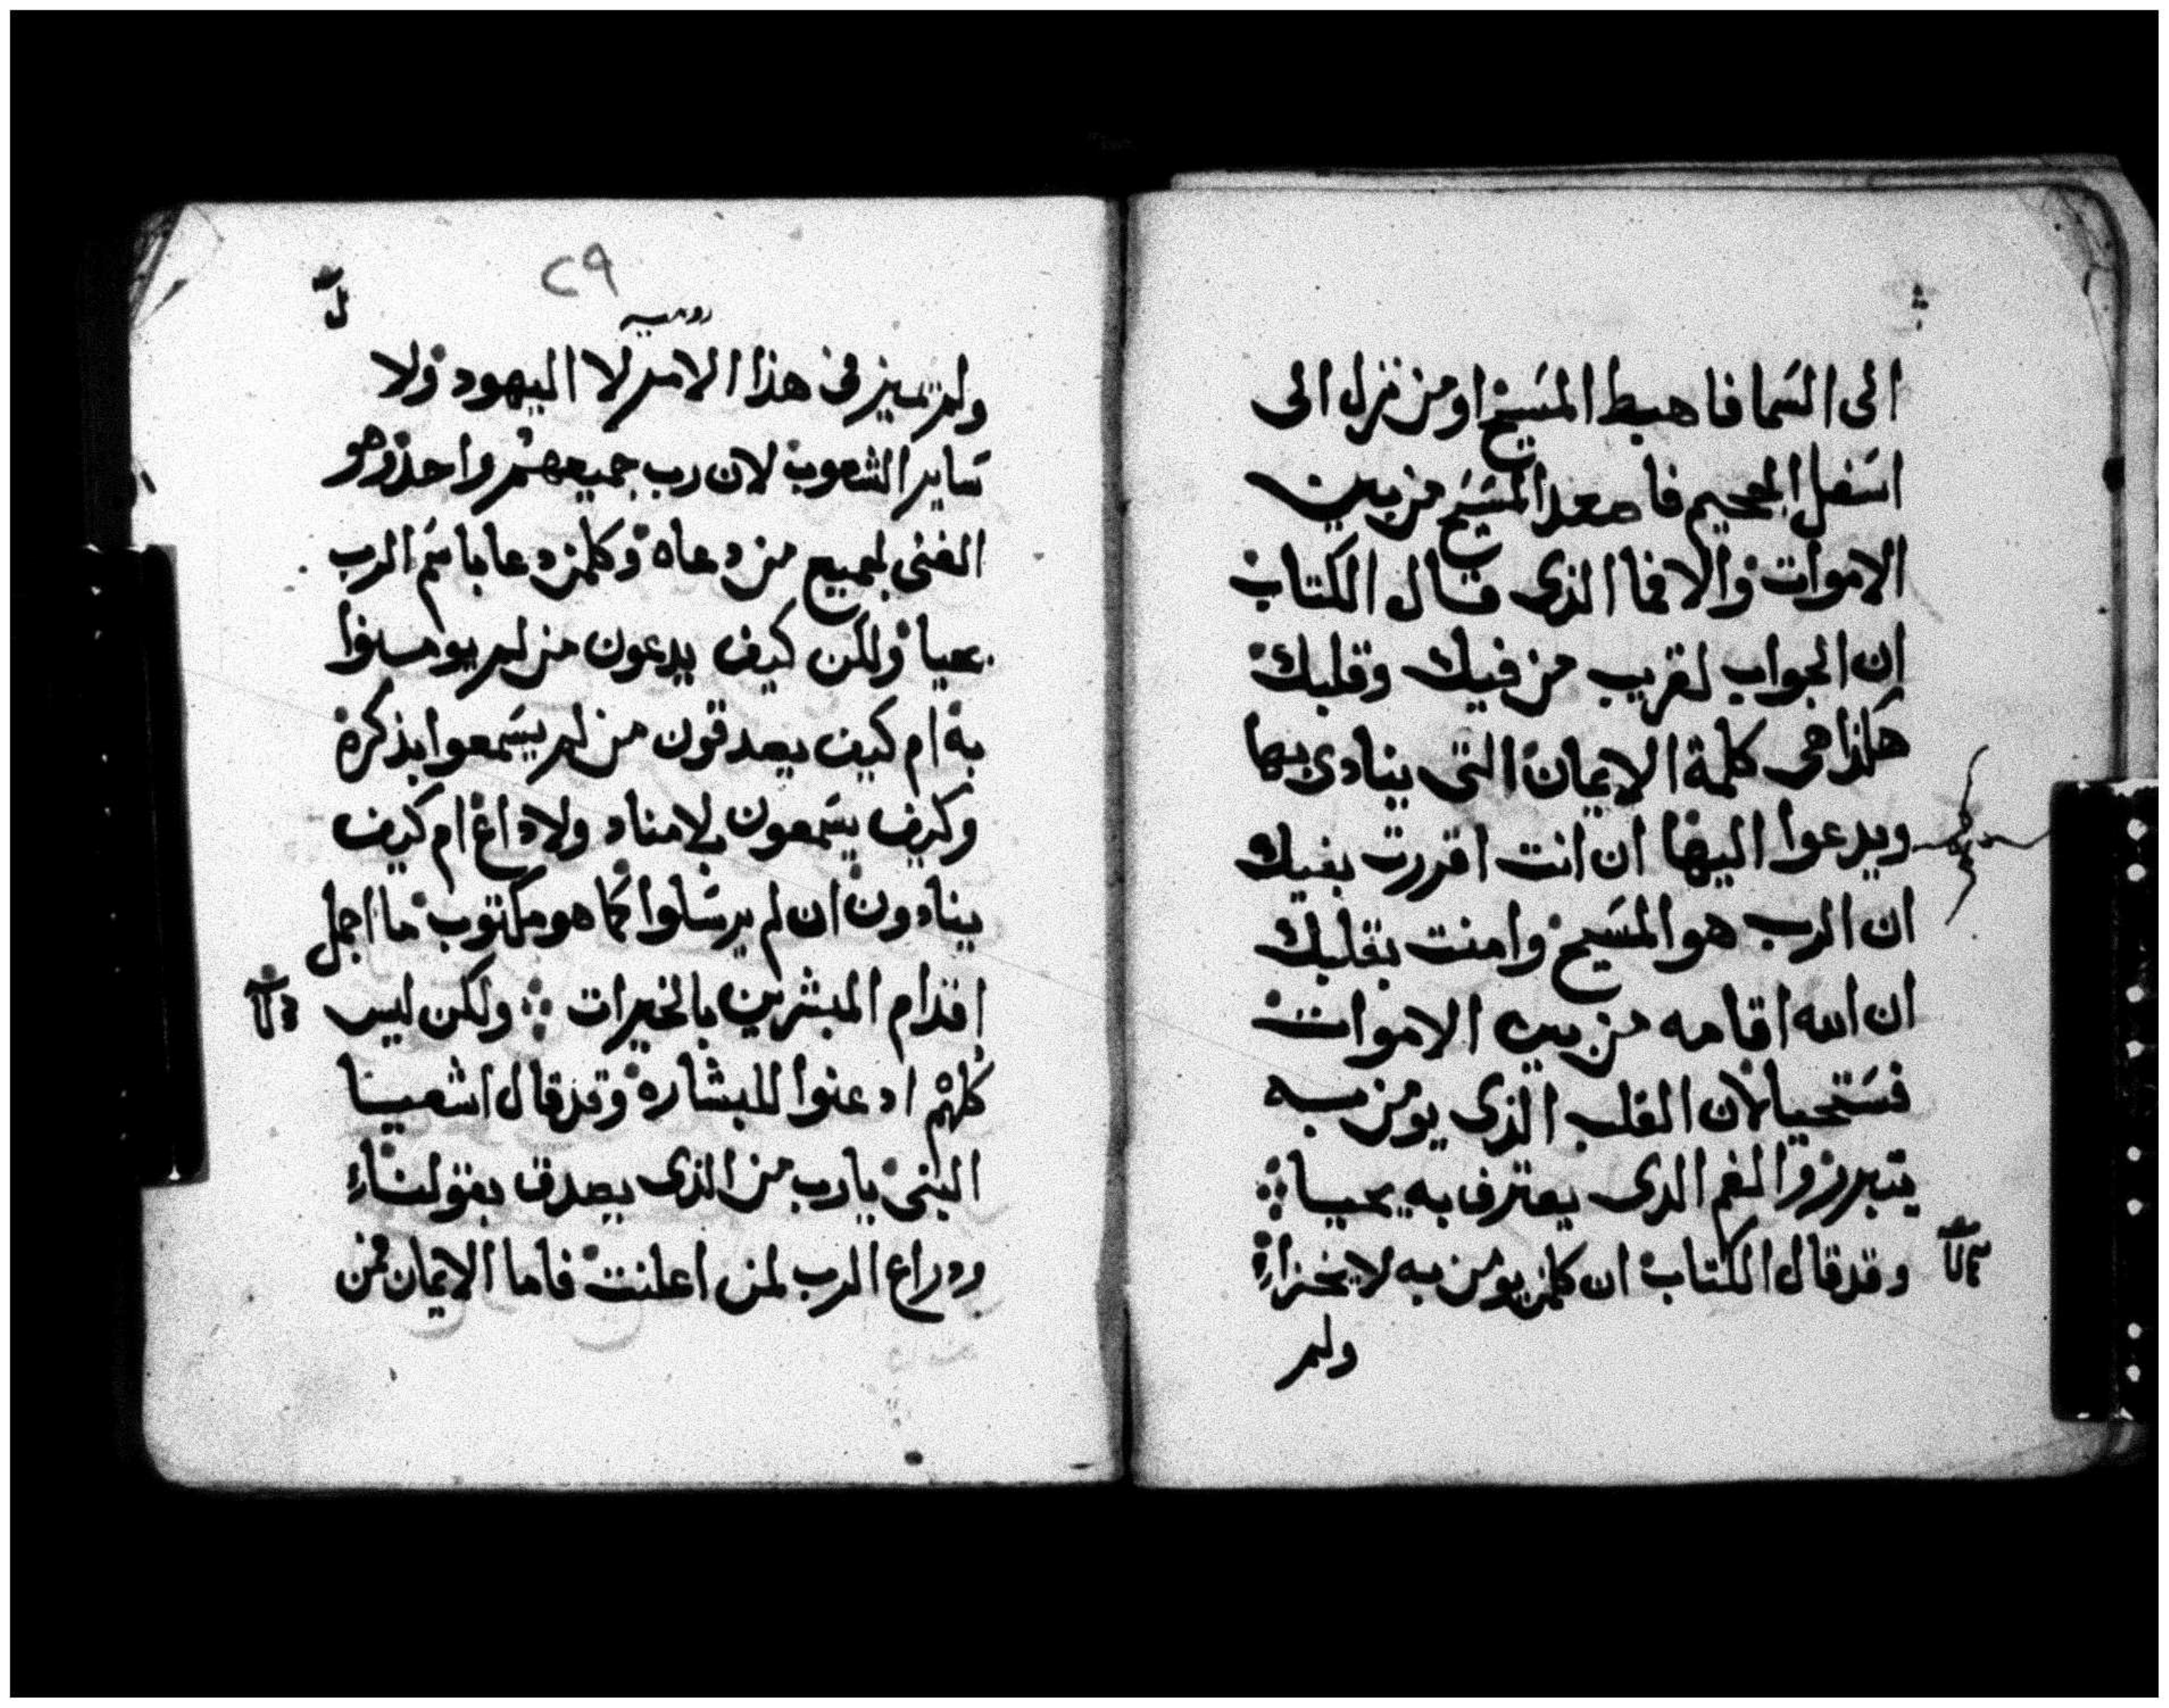 الى السما فاهبط المسيح او من نزل الى
اسفل الجحيم فاصعد المسيح من بين
الاموات والا فما الذى قال الكتاب
ان الجواب لقريب من فيك وقلبك
هكذا هى كلمة الايمان التى ينادى بها
ويدعوا اليها ان انت اقررت بفيك
ان الرب هو المسيح وامنت بقلبك
ان الله اقامه من بين الاموات
فستحيا لان القلب الذى يومن به
يتبرر والفم الدى يعترف به يحيا
وقد قال الكتاب ان كلمن يومن به لا يخزا
ولم
٢٩
رومية
ولم تميز فى هذا الامر لا اليهود ولا
ساير الشعوب لان رب جميعهم واحد وهو
الغنى لجميع من دعاه وكلمن دعا باسم الرب
يحيا ولكن كيف يدعون من لم يومنوا
به ام كيف يصدقون من لم يسمعوا بذكره
وكيف يسمعون بلا مناد ولا داع ام كيف
ينادون ان لم يرسلوا كما هو مكتوب ما اجمل
اقدام المبشرين بالخيرات ولكن ليس
كلهم ادعنوا للبشارة وقد قال اشعيا
النبى يا رب من الذى يصدق بقولنا
ودراع الرب لمن اعلنت فاما الايمان فمن